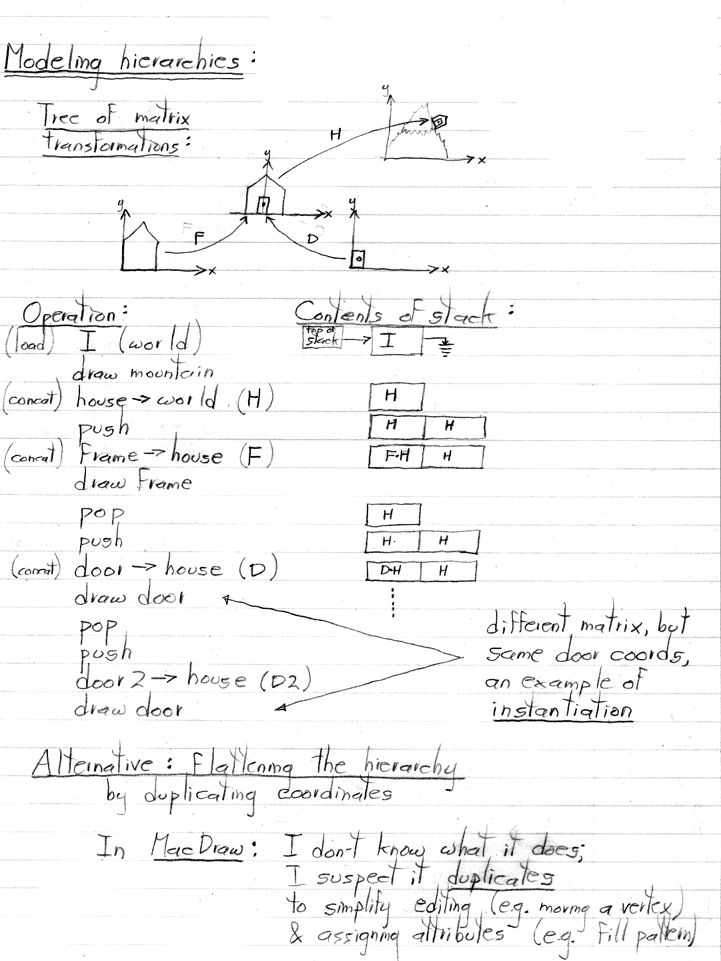 Modeling hierarchies:
Tree of matrix
transformations:
y
H
x
y
x
y
F
x
y
D
x
Operation: Contents of stack:
(load) I (world) top of stack I
draw mountain
(concat) house → world (H) H
push H H
(concat) Frame → house (F) F·H H
draw Frame
pop H
push H· H
(concat) door → house (D) D·H H
draw door
pop
push
door 2 → house (D2)
draw door
different matrix, but
same door coords,
an example of
instantiation
Alternative: Flattening the hierarchy
by duplicating coordinates
In MacDraw: I don't know what it does;
I suspect it duplicates
to simplify editing (e.g. moving a vertex)
& assigning attributes (e.g. Fill pattern)